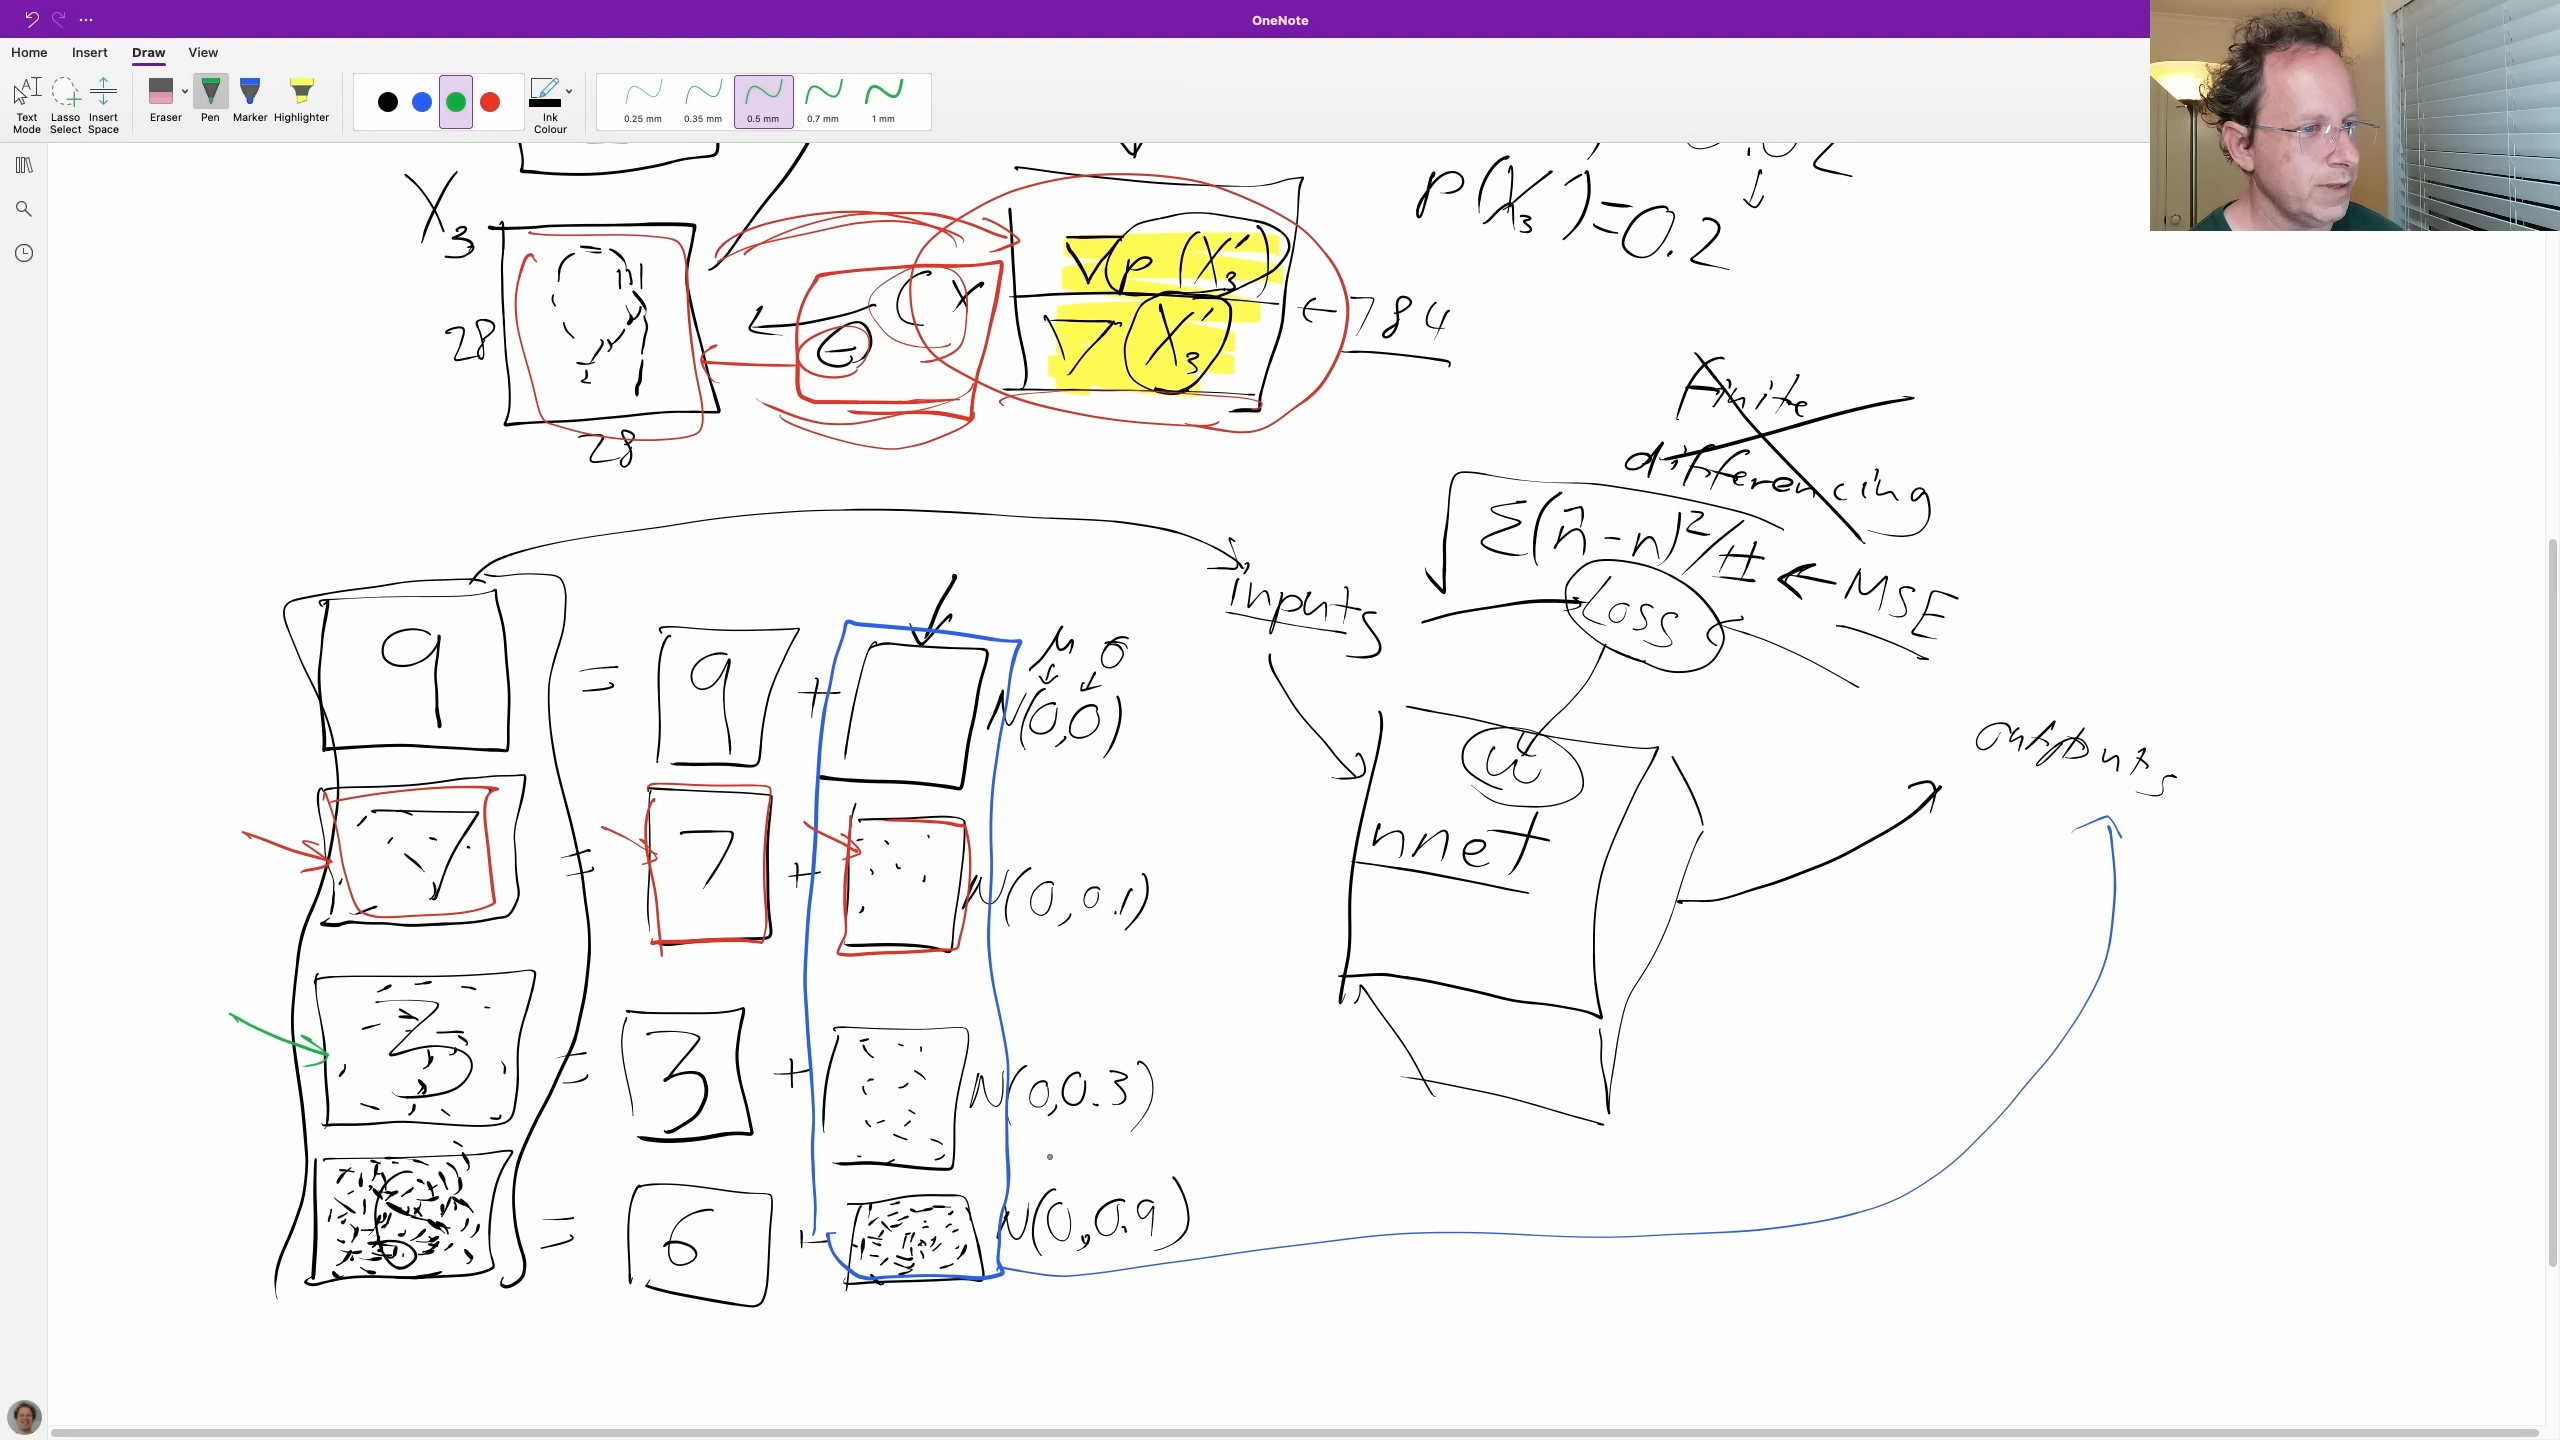 OneNote
Home Insert Draw View
Text Mode
Lasso Select
Insert Space
Eraser
Pen
Marker
Highlighter
Ink Colour
0.25 mm
0.35 mm
0.5 mm
0.7 mm
1 mm
X₃
28
28
∇(p(X₃'))
∇X₃'
←784
p(X₃')=0.2
Finite
differencing
Σ(n̂-n)²/# ← MSE
Loss
inputs
w
nnet
outputs
9 = 9 + N(0,0)
μ σ
7 = 7 + N(0,0.1)
3 = 3 + N(0,0.3)
6 = 6 + N(0,0.9)